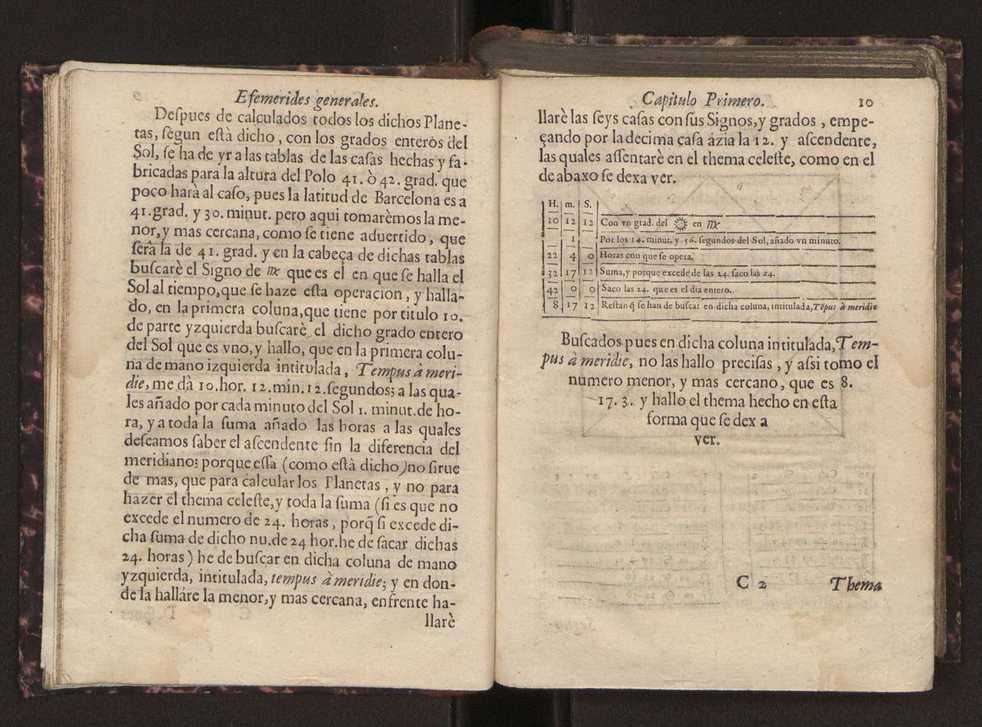 Efemerides generales.
Deſpues de calculados todos los dichos Plane-
tas, ſegun eſtà dicho, con los grados enteros del
Sol, ſe ha de yr a las tablas de las caſas hechas y fa-
bricadas para la altura del Polo 41. ò 42. grad. que
poco harà al caſo, pues la latitud de Barcelona es a
41. grad. y 30. minut. pero aqui tomarèmos la me-
nor, y mas cercana, como ſe tiene aduertido, que
ſerà la de 41. grad. y en la cabeça de dichas tablas
buſcarè el Signo de ♍ que es el en que ſe halla el
Sol al tiempo, que ſe haze eſta operacion, y halla-
do, en la primera coluna, que tiene por titulo 10.
de parte yzquierda buſcarè el dicho grado entero
del Sol que es vno, y hallo, que en la primera colu-
na de mano izquierda intitulada, Tempus à meri-
die, me dà 10. hor. 12. min. 12. ſegundos; a las qua-
les añado por cada minuto del Sol 1. minut. de ho-
ra, y a toda la ſuma añado las horas a las quales
deſeamos ſaber el aſcendente ſin la diferencia del
meridiano; porque eſſa (como eſtà dicho) no ſirue
de mas, que para calcular los Planetas, y no para
hazer el thema celeſte, y toda la ſuma (ſi es que no
excede el numero de 24. horas, porq̃ ſi excede di-
cha ſuma de dicho nu. de 24 hor. he de ſacar dichas
24. horas) he de buſcar en dicha coluna de mano
yzquierda, intitulada, tempus à meridie; y en don-
de la hallàre la menor, y mas cercana, enfrente ha-
llarè
Capitulo Primero. 10
llarè las ſeys caſas con ſus Signos, y grados, empe-
çando por la decima caſa àzia la 12. y aſcendente,
las quales aſſentarè en el thema celeſte, como en el
de abaxo ſe dexa ver.
H. m. S.
10 12 12 Con vn grad. del ☼ en ♍
1 Por los 14. minut. y 56. ſegundos del Sol, añado vn minuto.
22 4 0 Horas con que ſe opera.
32 17 12 Suma, y porque excede de las 24. ſaco las 24.
42 0 0 Saco las 24. que es el dia entero.
8 17 12 Reſtan q̃ ſe han de buſcar en dicha coluna, intitulada, Tẽpus à meridie
Buſcados pues en dicha coluna intitulada, Tem-
pus à meridie, no las hallo preciſas, y aſsi tomo el
numero menor, y mas cercano, que es 8.
17. 3. y hallo el thema hecho en eſta
forma que ſe dex a
ver.
C 2 Thema